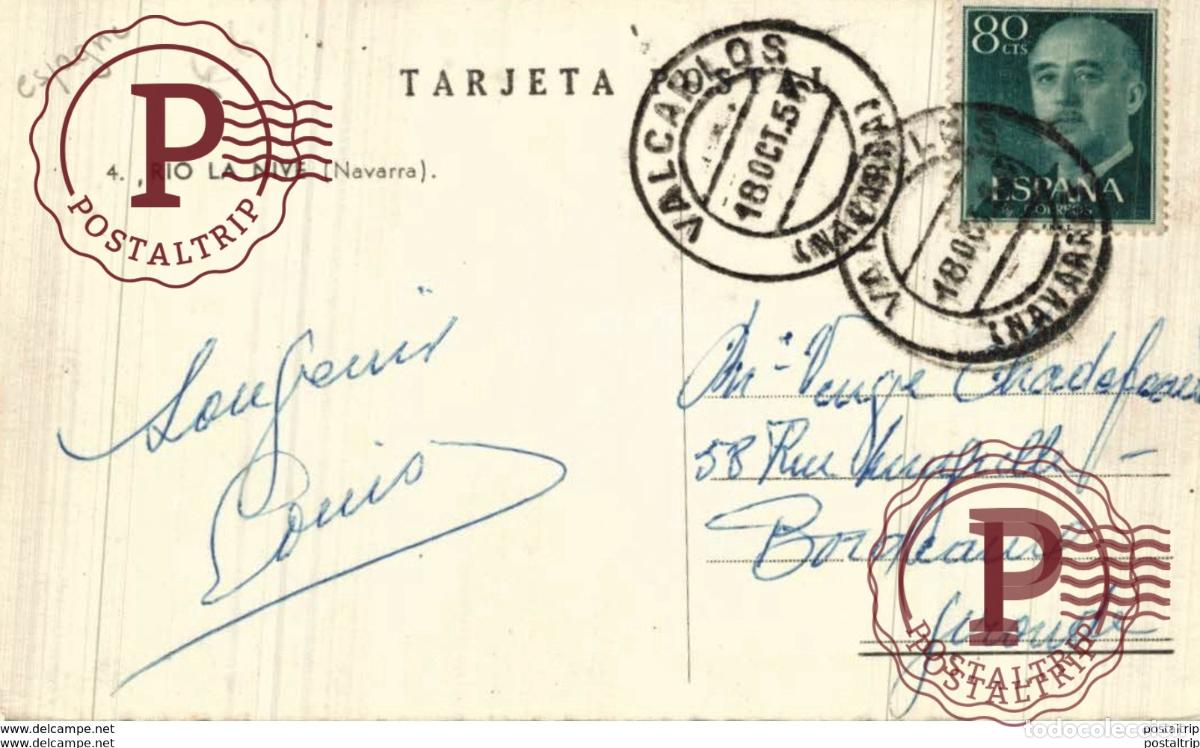 espagne
TARJETA POSTAL
4. RIO LA NIVE (Navarra).
POSTALTRIP
VALCARLOS
18 OCT. 5
(NAVARRA)
VALCARLOS
18 OCT
(NAVARRA)
80 CTS
ESPAÑA
CORREOS
Souvenir
Louis
58 Rue
Bordeaux
Gironde
P
POSTALTRIP
POSTALTRIP
www.delcampe.net
www.delcampe.net
todocoleccion
postaltrip
postaltrip